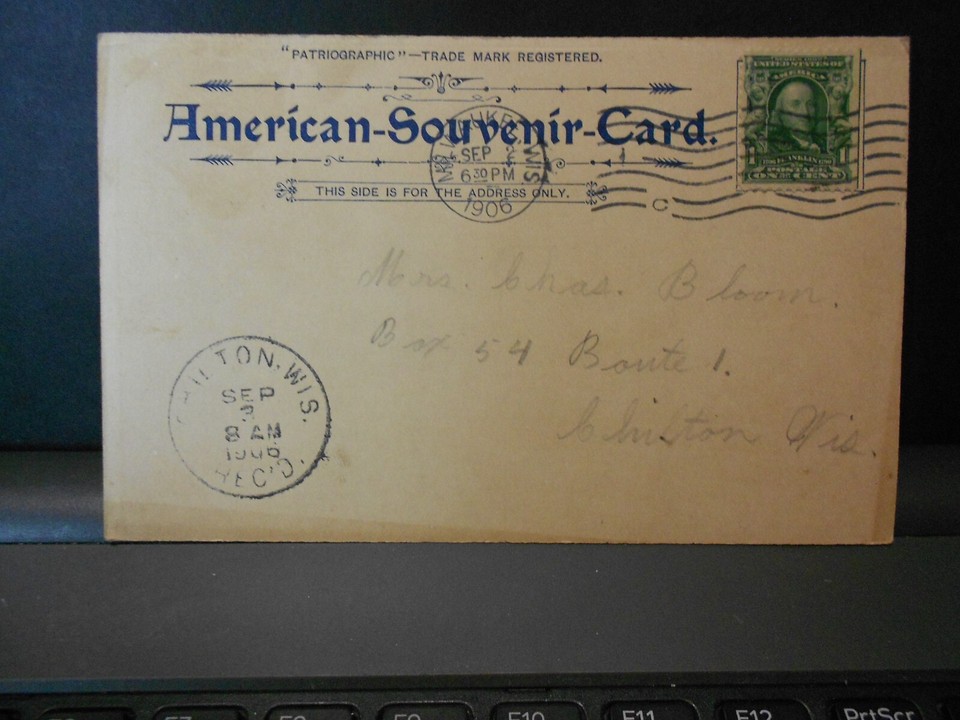 "PATRIOGRAPHIC"—TRADE MARK REGISTERED.
American-Souvenir-Card.
THIS SIDE IS FOR THE ADDRESS ONLY.
WIS
SEP 2
6 30 PM
1906
UNITED STATES OF
AMERICA
FRANKLIN
POSTAGE
ONE CENT
C
Mrs. Chas. Bloom.
Box 54 Route 1.
Chilton Wis.
CHILTON. WIS.
SEP
3
8 AM
1906
REC'D.
F9
F10
F11
F12
PrtScr